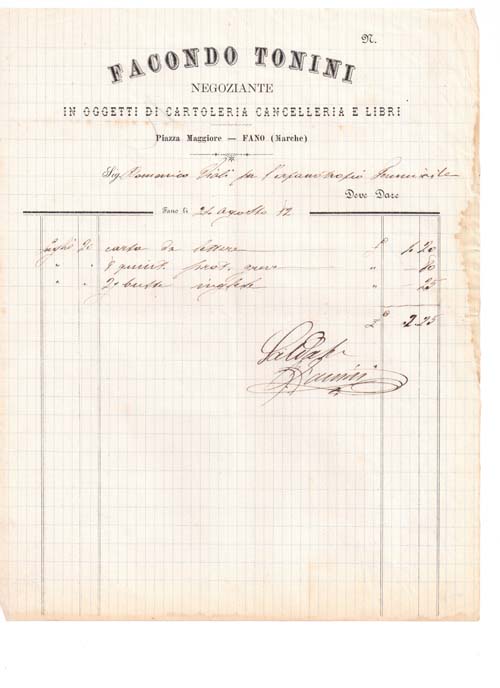 N.
FACONDO TONINI
NEGOZIANTE
IN OGGETTI DI CARTOLERIA CANCELLERIA E LIBRI
Piazza Maggiore — FANO (Marche)
Sig. Domenico per l'orfanotrofio
Deve Dare
Fano li 24 Agosto 82
carta da lettere £ 1. 20
" " 8 quint. prot. " 80
" " 20 buste inglesi " 25
£ 2. 25
Saldato
Tonini